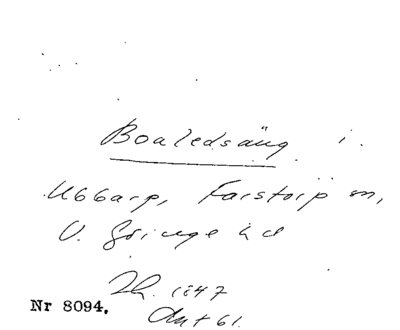 Boaledsäng i.
Ubbarp, Farstorp sn,
V. Göinge hd
Lh. 1847
Akt 61.
Nr 8094.